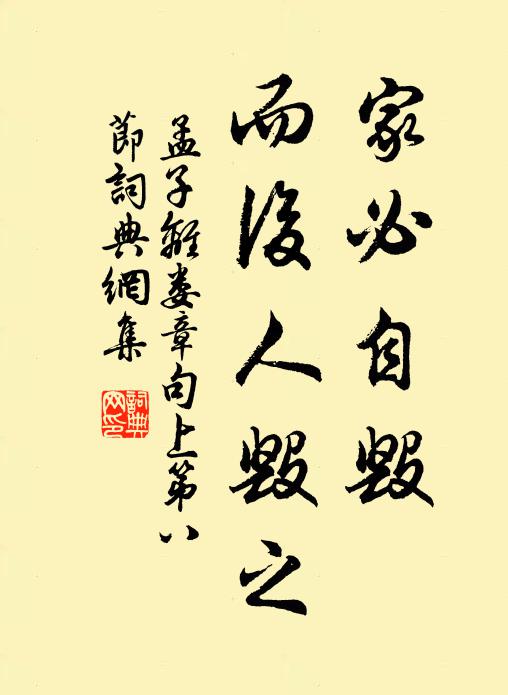 家必自毀
而後人毀之
孟子離娄章句上第八
節詞典網集
詞典
网印